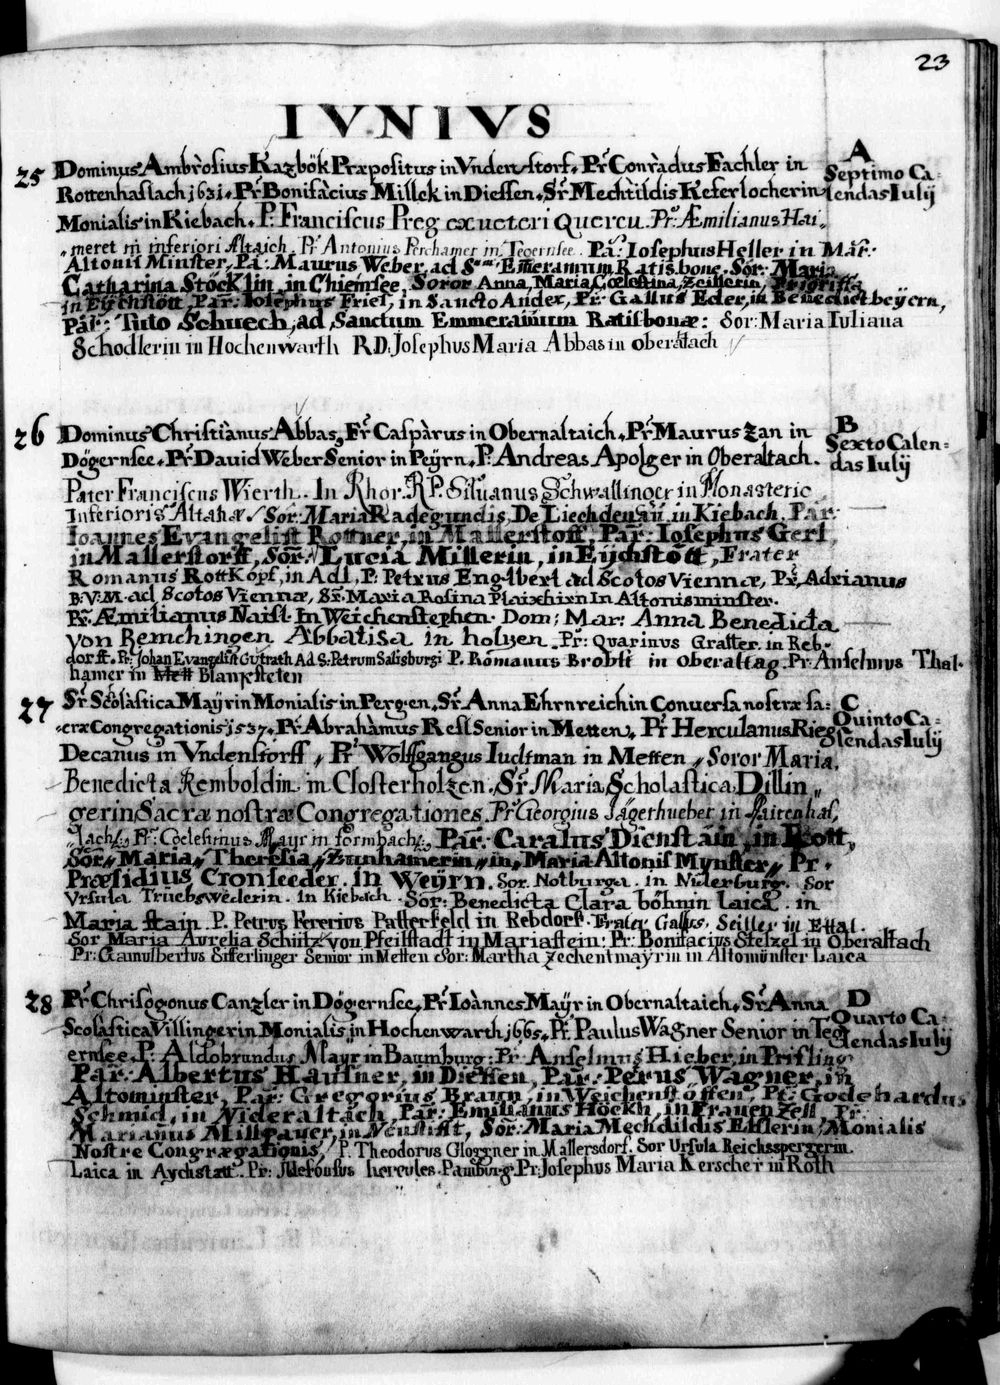 23
IVNIVS
25 Dominus Ambrosius Kazbök Præpositus in Vndenstorf. Pr̄ Conradus Fachler in
A
Septimo Ca-
lendas Iulij
Rottenhaslach 1631. Pr̄ Bonifacius Millek in Diessen. Sr̄ Mechtildis Keferlocherin
Monialis in Kiebach. P. Franciscus Preg ex ueteri Quercu. Pr̄ Æmilianus Hai-
meret in inferiori Altaich. Pr̄ Antonius Perchamer in Tegernsee. Pa: Iosephus Heller in Mar:
Altonis Minster, Pa: Maurus Weber, ad Sum Emeramum Ratisbone. Sor: Maria
Catharina Stöcklin, in Chiemsee, Soror Anna, Maria, Cœlestina, Zeillerin, Priorissa
in Eÿchstött, Par: Iosephus Fries, in Sancto Andex, Pr: Gallus Eder, in Benedictbeÿern,
Par: Tuto Schuech, ad Sanctum Emmeramum Ratisbonæ: Sor: Maria Iuliana
Schodlerin in Hochenwarth R.D: Josephus Maria Abbas in oberaltach
26 Dominus Christianus Abbas, Fr̄ Casparus in Obernaltaich. Pr̄ Maurus Zan in
B
Sexto Calen-
das Iulij
Dögernsee. Pr̄ David Weber Senior in Peÿrn. P. Andreas Apolger in Oberaltach.
Pater Franciscus Wierth. In Rhor. R.P. Siluanus Schwallinger in Monasterio
Inferioris Altahæ. Sor: Maria Radegundis, De Liechdenau, in Kiebach, Par:
Ioannes Evangelist Rottner, in Mallerstorff, Par: Iosephus Gerl,
in Mallerstorff, Sor: Lucia Millerin, in Eÿchstött, Frater
Romanus Rottkopf, in Adl, P: Petrus Englberl ad Scotos Viennæ, Pr̄, Adrianus
B:V:M. ad Scotos Viennæ, Sr̄: Maria Rosina Plaichirn In Altonisminster.
Pr̄: Æmilianus Naisl. In Weichenstephen. Dom; Mar: Anna Benedicta
von Remchingen Abbatisa in holzen. Pr: Quarinus Gratter. in Reb-
dorff. Pr: Johan Evangelist Gutrath Ad S: Petrum Salisburgi P. Romanus Brobst in Oberaltag. Pr: Anselmus Thal-
hamer in Mett Blanksteten
27 Sr̄ Scolastica Maÿrin Monialis in Pergen. Sr̄ Anna Ehrnreichin Conuersa nostræ sa:
C
Quinto Ca-
lendas Iulij
cræ Congregationis 1537. Pr̄ Abrahamus Resl Senior in Metten. Pr̄ Herculanus Rieg
Decanus in Vndenstorff, Pr̄ Wolffgangus Iudtman in Metten, Soror Maria,
Benedicta Remboldin in Closterholzen. Sr̄ Maria Scholastica Dillin„
gerin Sacræ nostræ Congregationes. Pr̄ Georgius Jägerhueber in Raitenhas,
lach/. Pr: Coelestinus Mayr in formbach/. Par: Caralus Dienstain, in Rott,
Sor: Maria, Theresia, Zunhamerin, in, Maria Altonis Mynster, Pr.
Præsidius Cronseeder. in Weÿrn. Sor. Notburga. in Niderburg. Sor
Ursula Triebswederin. in Kiebach. Sor: Benedicta Clara böhmin Laica. in
Maria stain. P. Petrus Fererius Patterfeld in Rebdorf. Frater Gallus, Seiller in Ettal.
Sor Maria Aurelia Schütz von Pfeilstadt in Mariastein: Pr: Bonifacius Stelzel in Oberaltach
Pr: Gamulbertus Sifferlinger Senior in Metten Sor: Martha Zechentmayrin in Altomünster Laica
28 Pr̄ Chrisogonus Canzler in Dögernsee. Pr̄ Ioannes Maÿr in Obernaltaich. Sr̄ Anna
D
Quarto Ca-
lendas Iulij
Scolastica Villingerin Monialis in Hochenwarth 1665. Pr̄: Paulus Wagner Senior in Teg
ernsee. P. Aldobrandus Mayr in Baumburg: Pr: Anselmus Hieber, in Prifling
Par: Albertus Hausner, in Diessen, Par: Petrus Wagner, in
Altominster, Par: Gregorius Braun, in Weichenstöffen, Pr: Godehardus
Schmid, in Nideraltach, Par: Emilianus Höckh, in Frauenzell, Pr:
Marianus Millpauer, in Neustifft, Sor: Maria Mechdildis Etslerin, Monialis
Nostre Congrægationis, P. Theodorus Gloggner in Mallersdorf. Sor Ursula Reichsspergerin
Laica in Aychstatt. Pr: Ildefonsus hercules. Pamburg. Pr: Josephus Maria Kerscher in Roth